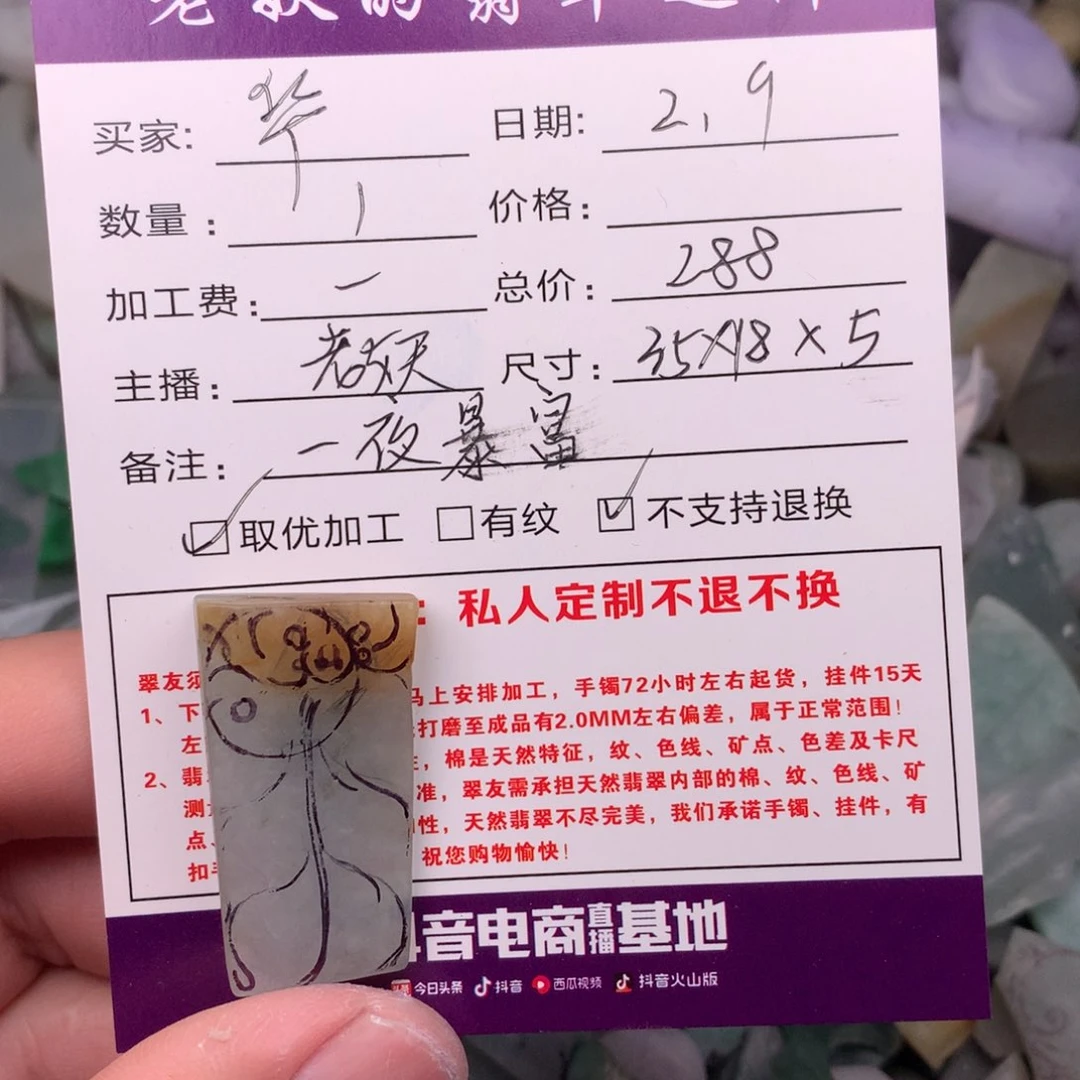 买家: 华 日期: 2.9
数量: 1 价格:
加工费: 一 总价: 288
主播: 老妖 尺寸: 35×18×5
备注: 一夜暴富
取优加工 有纹 不支持退换
: 私人定制不退不换
翠友须 马上安排加工，手镯72小时左右起货，挂件15天
1、下 打磨至成品有2.0MM左右偏差，属于正常范围！
左 ，棉是天然特征，纹、色线、矿点、色差及卡尺
2、翡 准，翠友需承担天然翡翠内部的棉、纹、色线、矿
测 性，天然翡翠不尽完美，我们承诺手镯、挂件，有
点、 祝您购物愉快！
扣手
音电商直播基地
头条 今日头条 抖音 西瓜视频 抖音火山版